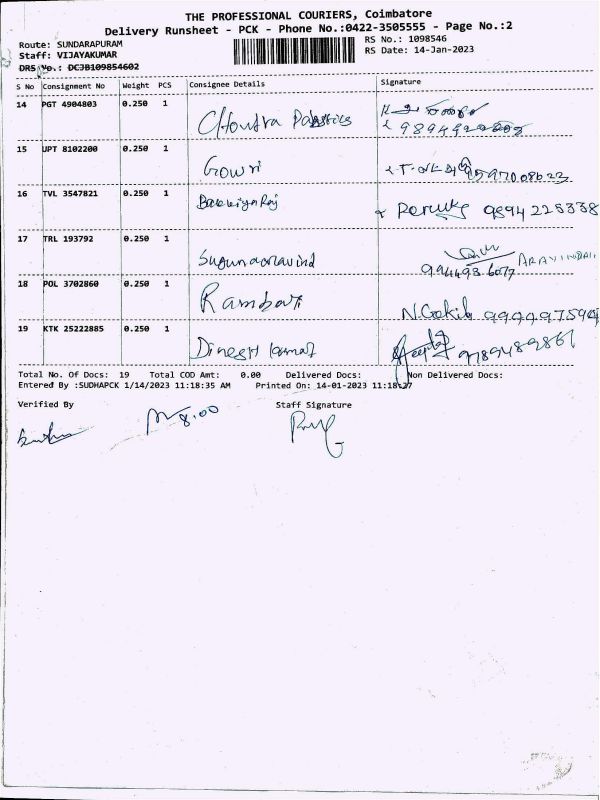 THE PROFESSIONAL COURIERS, Coimbatore
Delivery Runsheet - PCK - Phone No.:0422-3505555 - Page No.:2
Route: SUNDARAPURAM RS No.: 1098546
Staff: VIJAYAKUMAR RS Date: 14-Jan-2023
DRS No.: DCJB109854602
S No Consignment No Weight PCS Consignee Details Signature
14 PGT 4904803 0.250 1
15 UPT 8102200 0.250 1
Gowri
16 TVL 3547821 0.250 1
9894225338
17 TRL 193792 0.250 1
Sugunaaravind ARAVINDAN
18 POL 3702860 0.250 1
N.Gokila
19 KTK 25222885 0.250 1
Dinesh kumar 9789489861
Total No. Of Docs: 19 Total COD Amt: 0.00 Delivered Docs: Non Delivered Docs:
Entered By :SUDHAPCK 1/14/2023 11:18:35 AM Printed On: 14-01-2023 11:18:37
Verified By Staff Signature
8.00